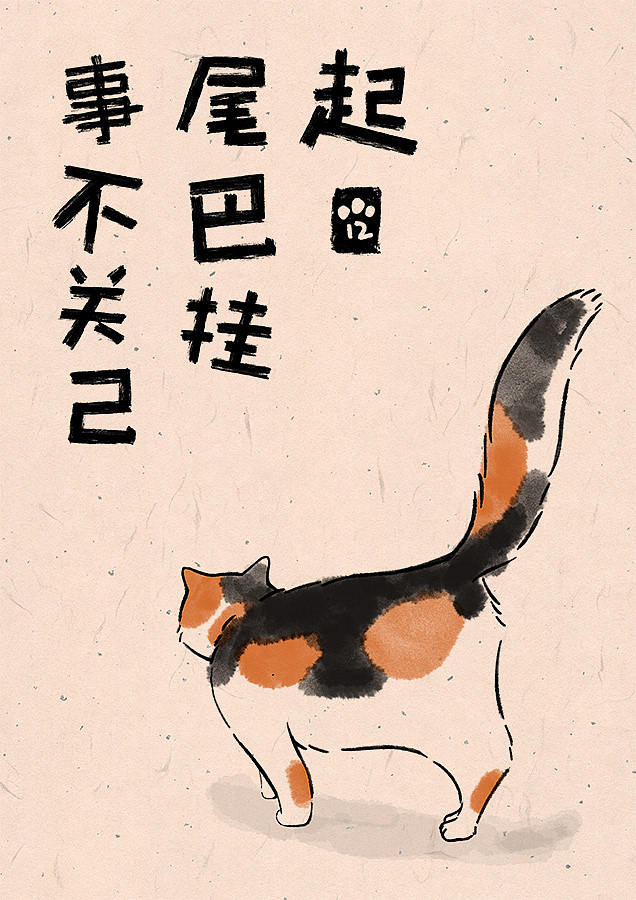 事不关己
尾巴挂
起
12